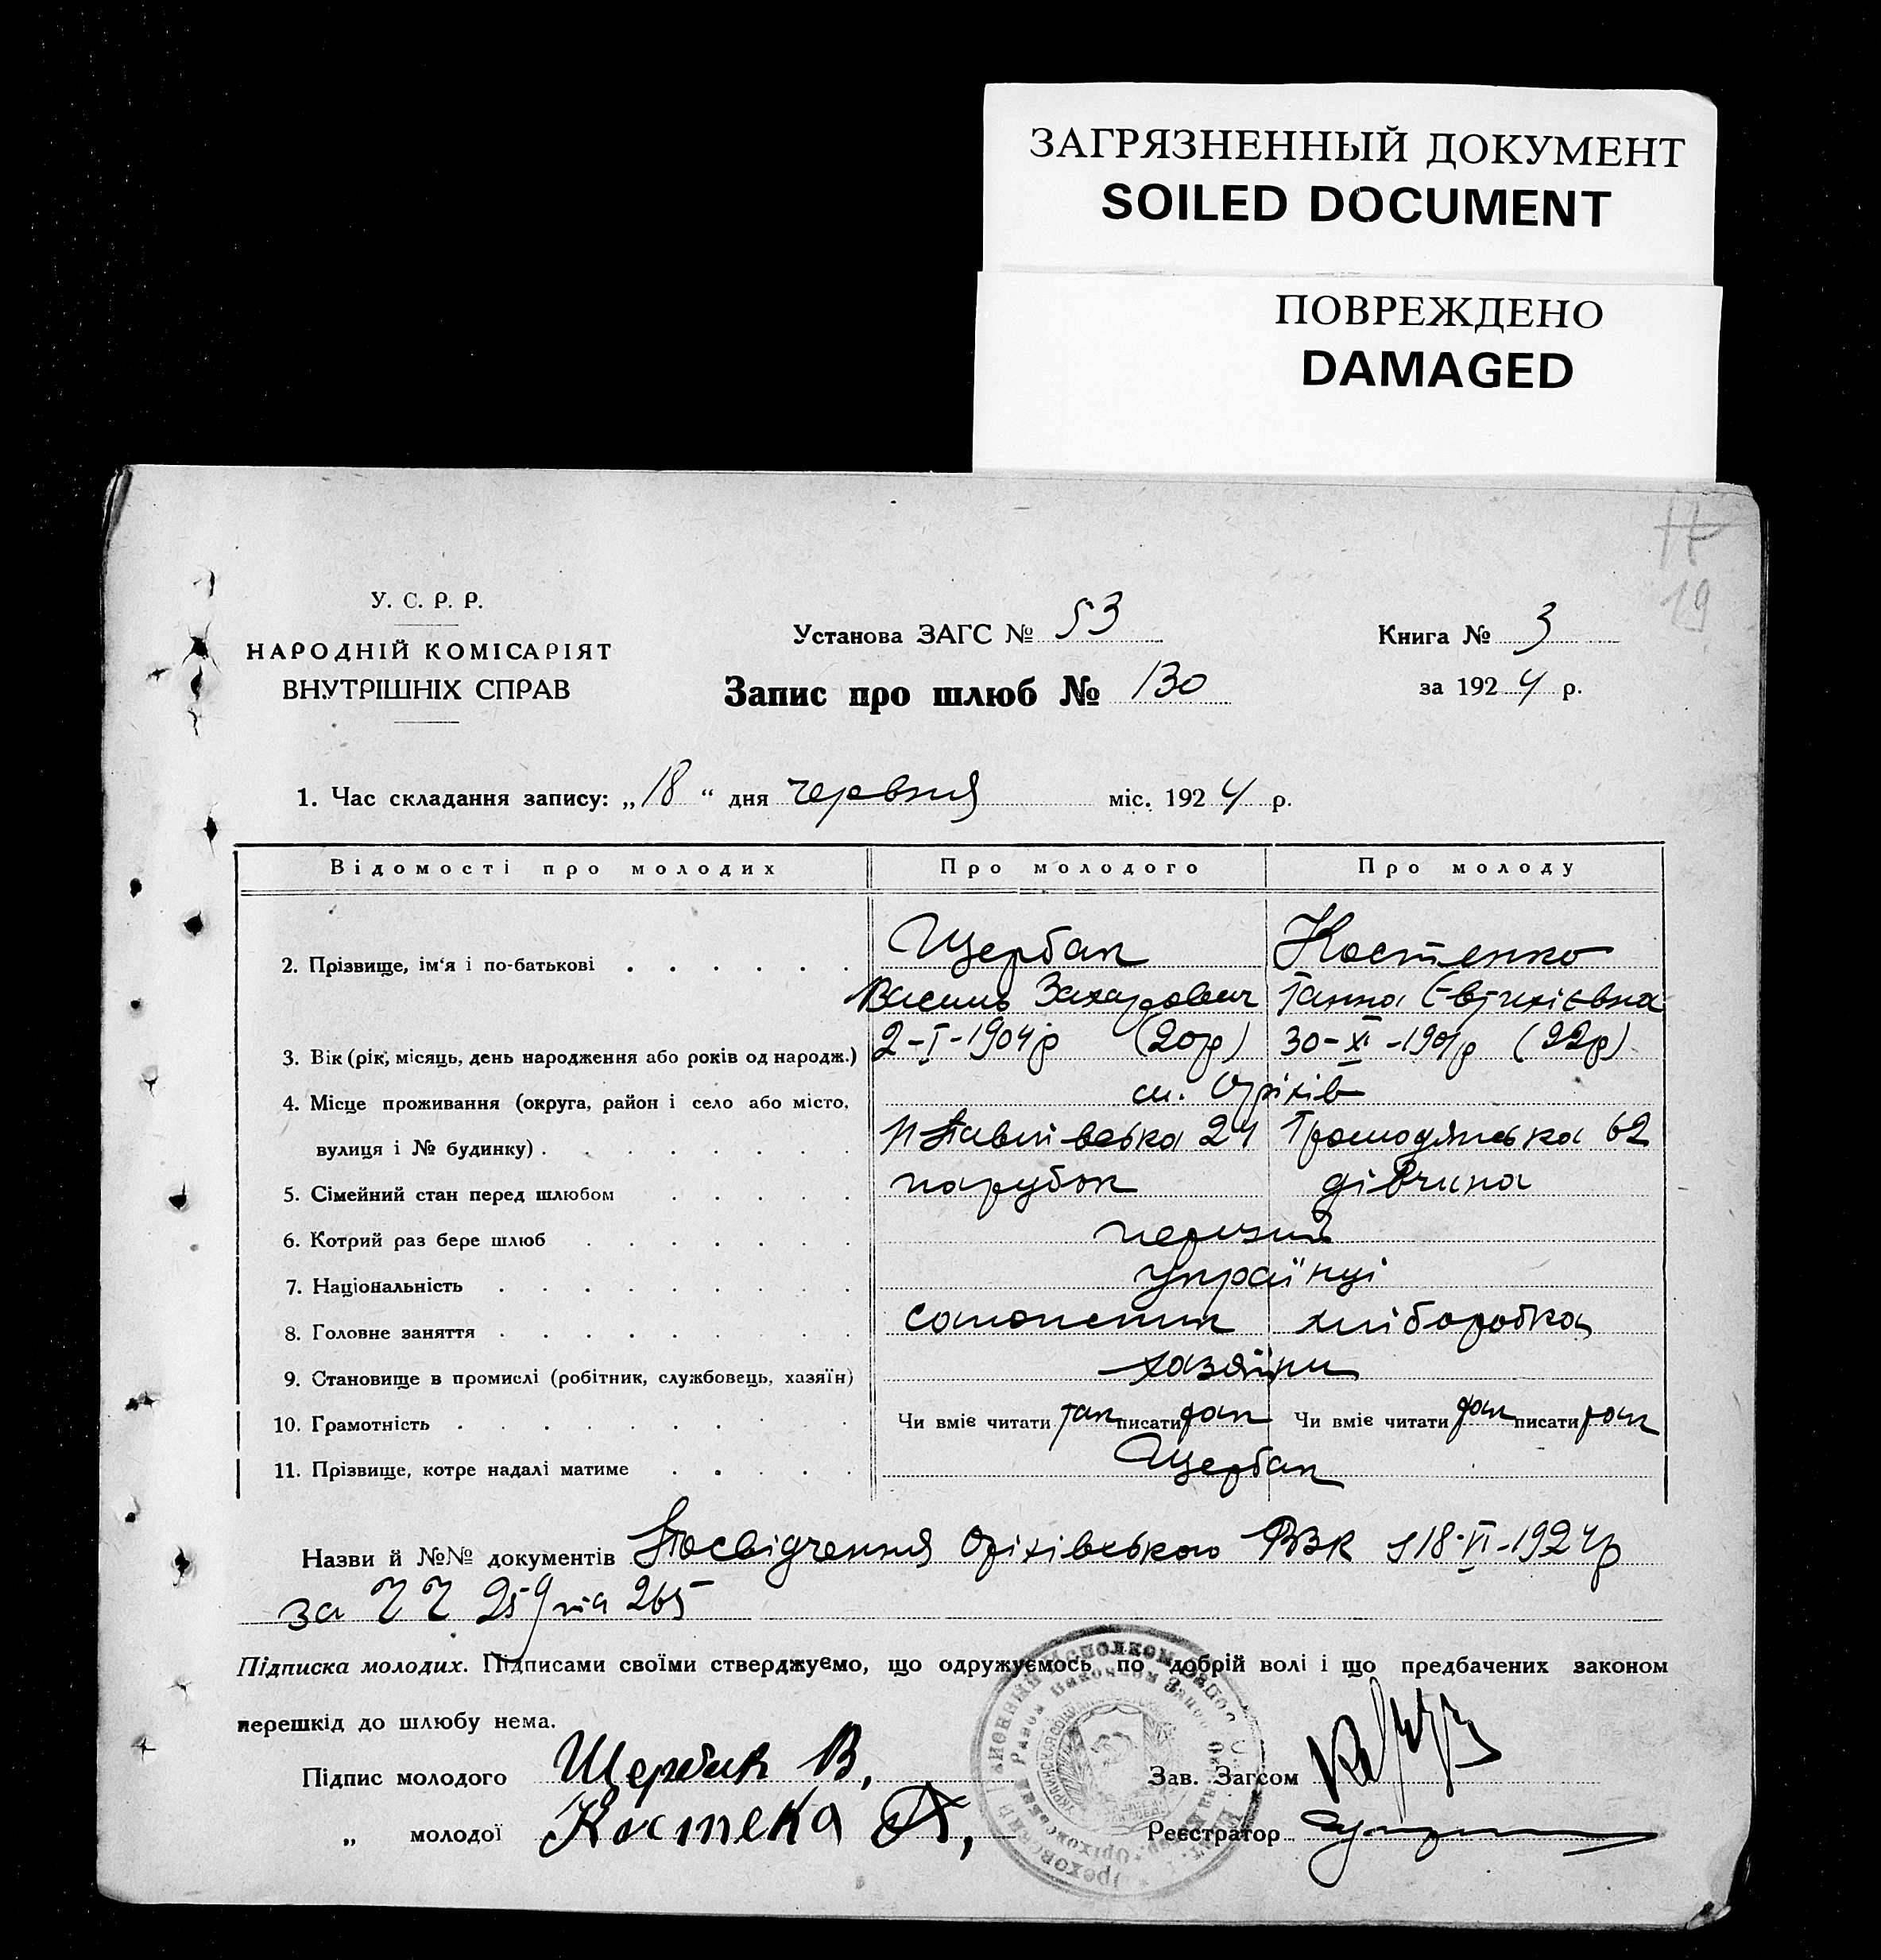 ЗАГРЯЗНЕННЫЙ ДОКУМЕНТ
SOILED DOCUMENT
ПОВРЕЖДЕНО
DAMAGED
17
19
У. С. Р. Р.
НАРОДНІЙ КОМІСАРІЯТ
ВНУТРІШНІХ СПРАВ
Установа ЗАГС № 53
Книга № 3
Запис про шлюб № 130
за 1924 р.
1. Час складання запису: „18“ дня червня міс. 1924 р.
Відомості про молодих Про молодого Про молоду
2. Прізвище, ім'я і по-батькові Щербак Костенко
Василь Захарович Ганна Євтихієвна
3. Вік (рік, місяць, день народження або років од народж.) 2-I-1904р (20р) 30-XI-1901р (22р)
4. Місце проживання (округа, район і село або місто, м. Оріхів
вулиця і № будинку) Павлівська 24 Громодянська 62
5. Сімейний стан перед шлюбом парубок дівчина
6. Котрий раз бере шлюб перший
7. Національність українці
8. Головне заняття хліборобка
9. Становище в промислі (робітник, службовець, хазяїн) хазяїни
10. Грамотність Чи вміє читати так писати так Чи вміє читати так писати так
11. Прізвище, котре надалі матиме Щербак
Назви й №№ документів Посвідчення Оріхівського РВК з 18-VI-1924р
за Ч Ч 259 та 265
Підписка молодих. Підписами своїми стверджуємо, що одружуємось по добрій волі і що предбачених законом
перешкід до шлюбу нема.
Підпис молодого Щербак В,
Зав. Загсом
„ молодої Костека А,
Реєстратор